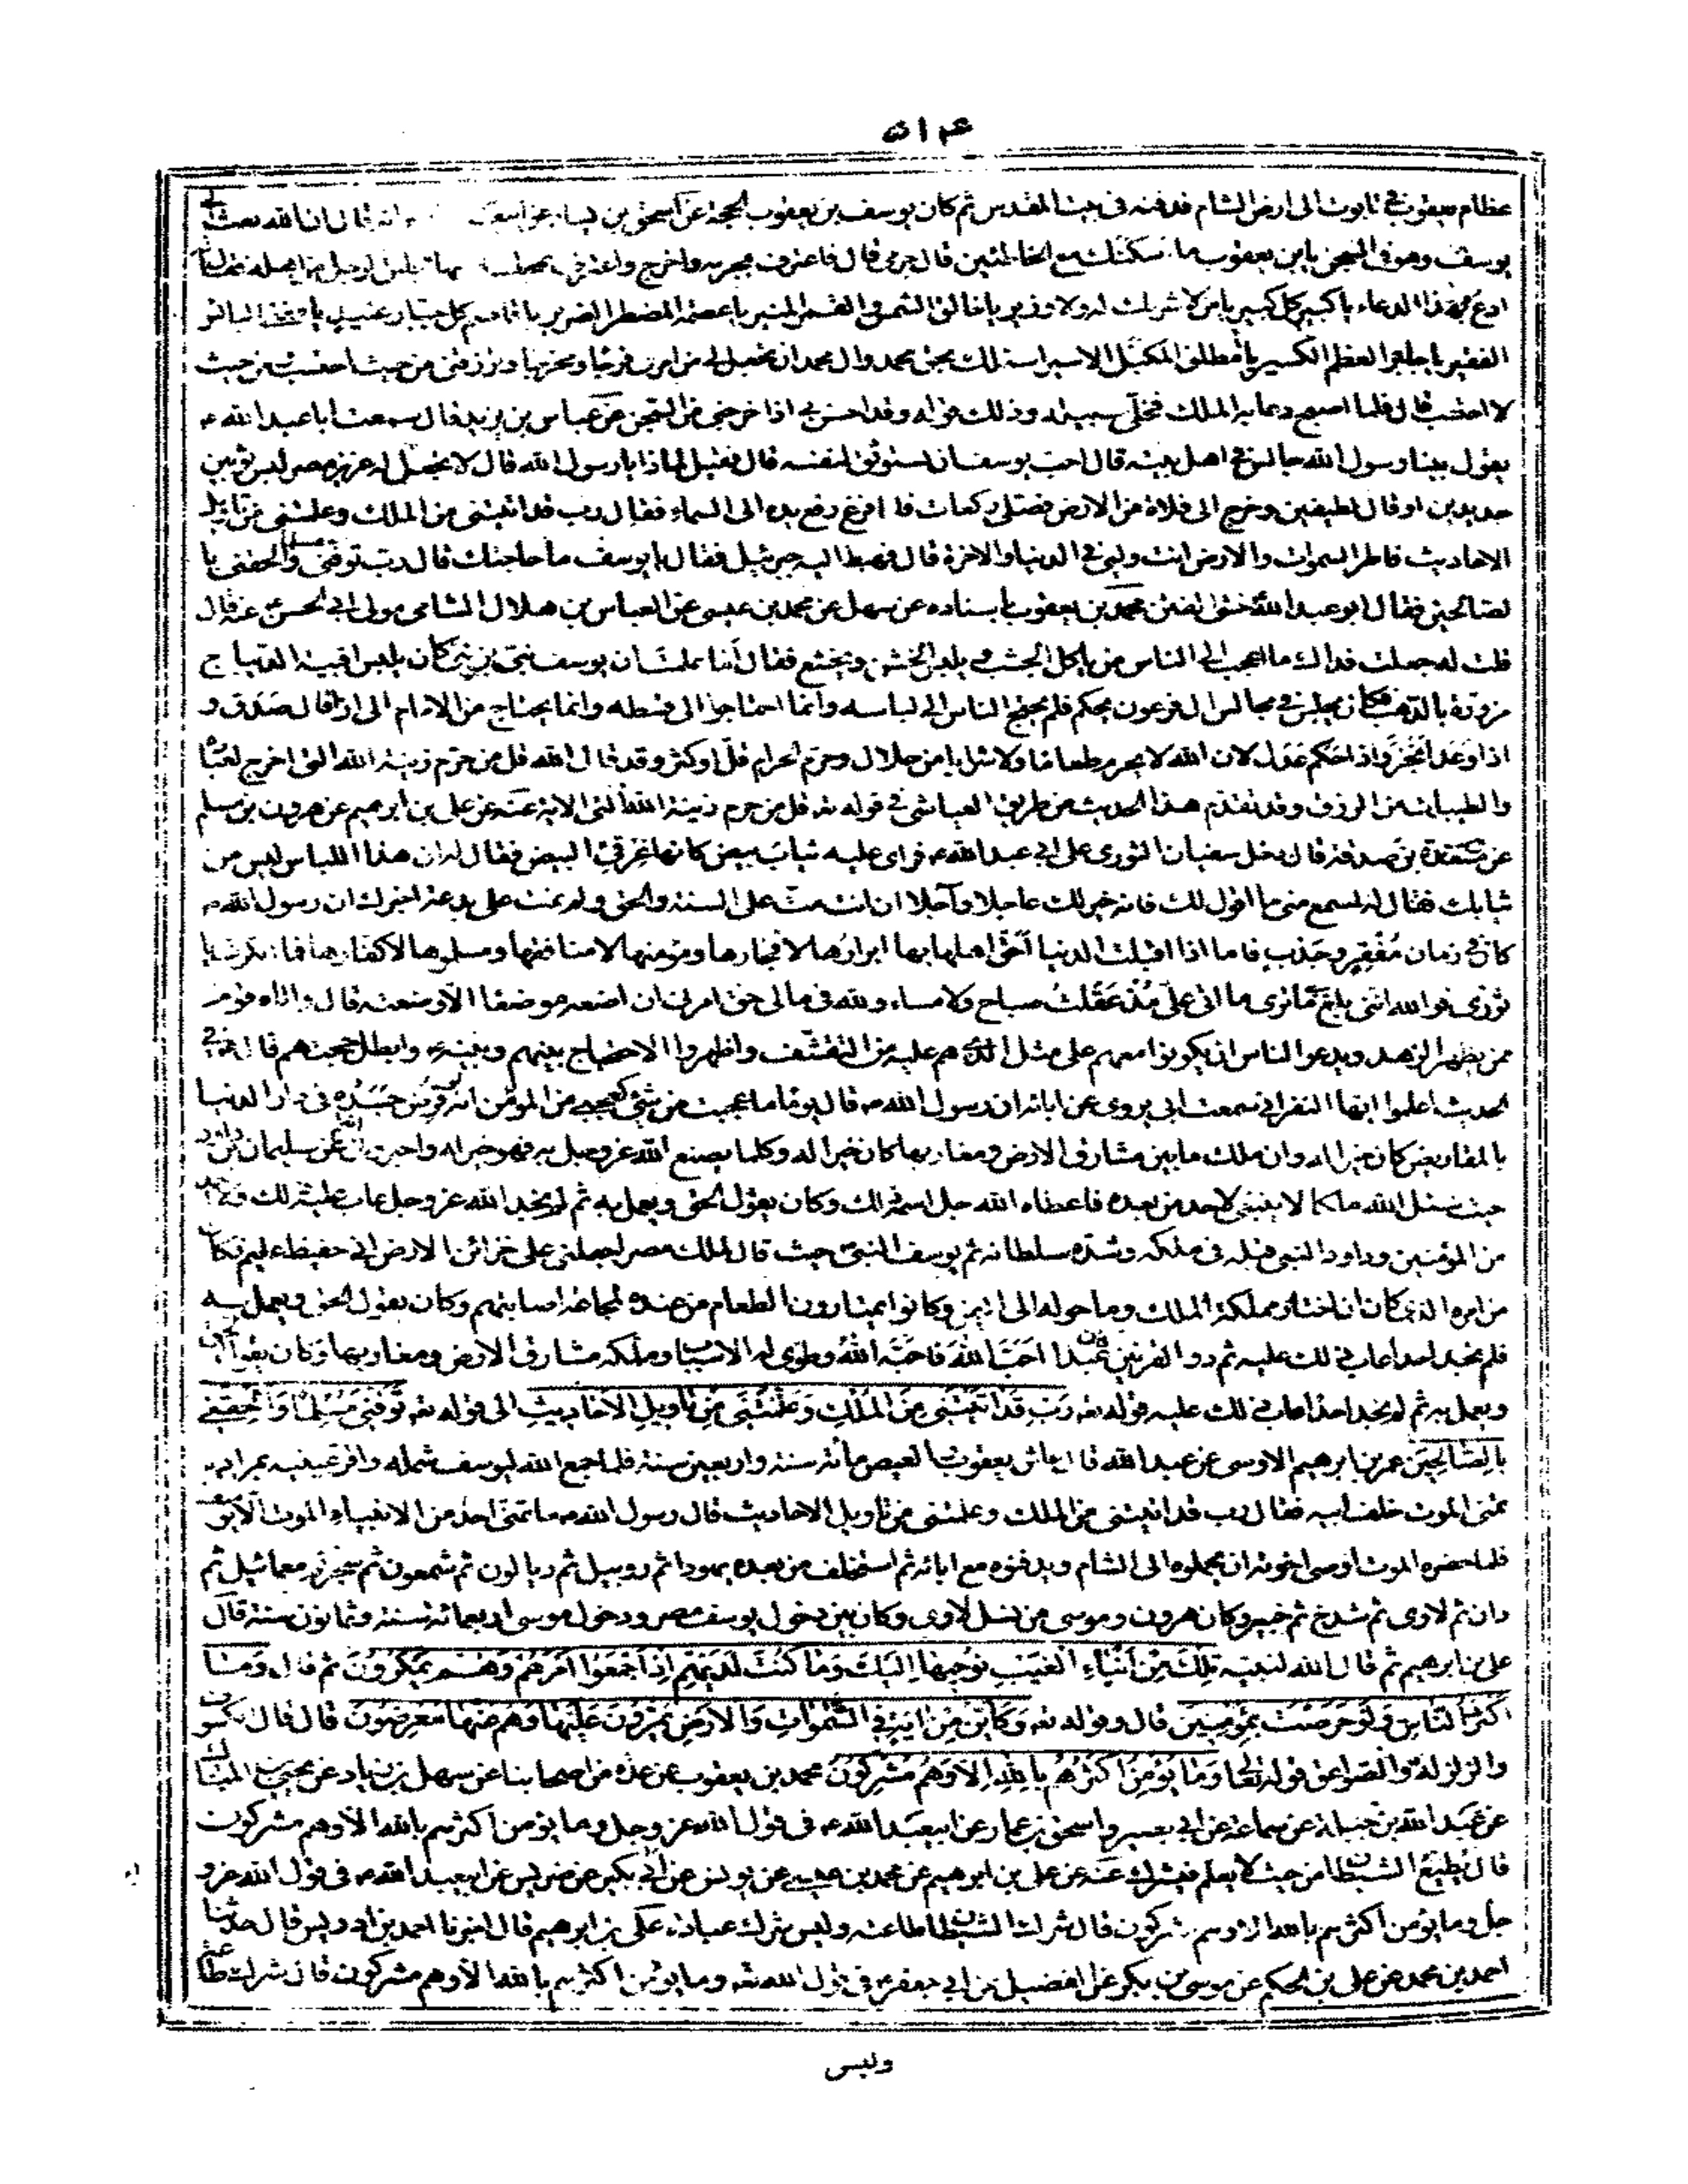 عظام يعقوب في تابوت الى ارض الشام فدفنه في بيت المقدس ثم كان يوسف بن يعقوب الحجة عن اسحق بن يسار عن انه قال ان الله بعث الى
يوسف وهو في السجن يا بن يعقوب ما اسكنك مع الخاطئين قال جرمي قال فاعترف بجرمه واخرج واعترف بمجلسه
ادع بهذا الدعاء يا كبير كل كبير يا من لا شريك له ولا وزير يا خالق الشمس والقمر المنير يا عصمة المضطر الضرير يا قاصم كل جبار عنيد يا مغني البائس
الفقير يا جابر العظم الكسير يا مطلق المكبل الاسير اسئلك بحق محمد وال محمد ان تجعل لي من امري فرجا ومخرجا وترزقني من حيث احتسب ومن حيث
لا احتسب قال فلما اصبح دعا به الملك فخلى سبيله وذلك قوله وقد احسن بي اذ اخرجني من السجن عن عباس بن يزيد قال سمعت ابا عبد الله ع
يقول بينا رسول الله جالس في اهل بيته قال احب يوسف ان يستوثق لنفسه قال فقيل لماذا يا رسول الله قال لما عزل له عزيز مصر لبس ثوبين
جديدين او قال لطيفين وخرج الى فلاة من الارض فصلى ركعات فلما فرغ رفع يده الى السماء فقال رب قد اتيتني من الملك وعلمتني من تاويل
الاحاديث فاطر السموات والارض انت وليي في الدنيا والاخرة قال فهبط اليه جبرئيل فقال يا يوسف ما حاجتك قال رب توفني مسلما والحقني با
لصالحين فقال ابو عبد الله خشي الفتن محمد بن يعقوب باسناده عن سهل عن محمد بن عيسى عن العباس بن هلال الشامي مولى ابي الحسن ع عنه قال
قلت له جعلت فداك ما اعجب الى الناس من ياكل الجشب ويلبس الخشن ويتخشع فقال اما علمت ان يوسف نبي بن نبي كان يلبس اقبية الديباج
مزورة بالذهب فكان يجلس في مجالس ال فرعون يحكم فلم يحتج الناس الى لباسه وانما احتاجوا الى قسطه وانما يحتاج من الامام الى ان اذا قال صدق و
اذا وعد انجز واذا حكم عدل لان الله لا يحرم طعاما ولا شرابا من حلال وحرم الحرام قل او كثر وقد قال الله قل من حرم زينة الله التي اخرج لعباده
والطيبات من الرزق وقد تقدم هذا الحديث من طريق العياشي في قوله تعالى قل من حرم زينة الله التي الاية عنه عن علي بن ابرهيم عن هرون بن مسلم
عن مسعدة بن صدقة قال دخل سفيان الثوري على ابي عبد الله ع فراى عليه ثياب بيض كانها غرقئ البيض فقال له ان هذا اللباس ليس من
ثيابك فقال له اسمع مني ما اقول لك فانه خير لك عاجلا وآجلا ان انت مت على السنة والحق ولم تمت على بدعة اخبرك ان رسول الله ص
كان في زمان مقفر جدب فاما اذا اقبلت الدنيا احق اهلها بها ابرارها لا فجارها ومؤمنها لا منافقها ومسلموها لا كفارها فما انكرت يا
ثوري فوالله انني بلغ ما ترى ما اتى علي مذ عقلت صباح ولا مساء ولله في مالي حق امرني ان اضعه موضعا الا وضعته قال واتاه قوم
ممن يظهر الزهد ويدعو الناس ان يكونوا معهم على مثل الذي هم عليه من التقشف واظهروا الاحتجاج بينهم وبينه ع وابطل حججتهم قال لهم في
الحديث اعلموا ايها النفر اني سمعت ابي يروي عن ابائه ان رسول الله ص قال يوما ما عجبت من شيء كعجبي من المؤمن انه قرض جسده في دار الدنيا
بالمقاريض كان خيرا له وان ملك ما بين مشارق الارض ومغاربها كان خيرا له وكلما يصنع الله عز وجل به فهو خير له واخبروني اين انتم عن سليمان بن داود
حيث سئل الله ملكا لا ينبغي لاحد من بعده فاعطاه الله جل اسمه ذلك وكان يقول الحق ويعمل به ثم لم نجد الله عز وجل عاب عليه ذلك ولا احد
من المؤمنين وداود النبي قبله في ملكه وشدة سلطانه ثم يوسف النبي حيث قال لملك مصر اجعلني على خزائن الارض اني حفيظ عليم فكان
من امره الذي كان ان اختار مملكة الملك وما حولها الى اليمن وكانوا يمتارون الطعام من عنده لمجاعة اصابتهم وكان يقول الحق ويعمل به
فلم نجد احدا عاب ذلك عليه ثم ذو القرنين عبدا احب الله فاحبه الله وطوى له الاسباب وملكه مشارق الارض ومغاربها وكان يقول الحق
ويعمل به ثم لم نجد احدا عاب ذلك عليه قوله تعالى رب قد اتيتني من الملك وعلمتني من تاويل الاحاديث الى قوله تعالى توفني مسلما والحقني
بالصالحين عمر بن ابرهيم الاوسى عن عبد الله قال عاش يعقوب بالعيص مأئة سنة واربعين سنة فلما جمع الله ليوسف شمله واقر عينيه بمراده
تمنى الموت خلف ابيه فقال رب قد اتيتني من الملك وعلمتني من تاويل الاحاديث قال رسول الله ص ما تمنى احد من الانبياء الموت الا يوسف
فلما حضره الموت اوصى اخوته ان يحملوه الى الشام ويدفنوه مع ابائه ثم استخلف من بعده يهودا ثم روبيل ثم ريالون ثم شمعون ثم معائيل ثم
دان ثم لاوى ثم شدخ ثم خبير وكان هرون وموسى من نسل لاوى وكان بين دخول يوسف مصر ودخول موسى اربعمائة سنة وثمانون سنة قال
علي بن ابرهيم ثم قال الله لنبيه تلك من انباء الغيب نوحيها اليك وما كنت لديهم اذ اجمعوا امرهم وهم يمكرون ثم قال وما
اكثر الناس ولو حرصت بمؤمنين قال وقوله تعالى وكاين من اية في السموات والارض يمرون عليها وهم عنها معرضون قال قال الكسوف
والزلزلة والصواعق قوله تعالى وما يؤمن اكثرهم بالله الا وهم مشركون محمد بن يعقوب عن عدة من اصحابنا عن سهل بن زياد عن يحيى بن المبارك
عن عبد الله بن جبلة عن سماعة عن ابي بصير واسحق بن عمار عن ابي عبد الله ع في قول الله عز وجل وما يؤمن اكثرهم بالله الا وهم مشركون
قال يطيع الشيطان من حيث لا يعلم فيشرك عنه عن علي بن ابرهيم عن محمد بن عيسى عن يونس عن ابن بكير عن ضريس عن ابي عبد الله ع في قول الله عز و
جل وما يؤمن اكثرهم بالله الا وهم مشركون قال شرك الشيطان طاعته وليس شرك عبادة علي بن ابرهيم قال اخبرنا احمد بن ادريس قال حدثنا
احمد بن محمد عن علي بن الحكم عن موسى بن بكر عن الفضيل عن ابي جعفر ع في قول الله تعالى وما يؤمن اكثرهم بالله الا وهم مشركون قال شرك طاعة
وليس